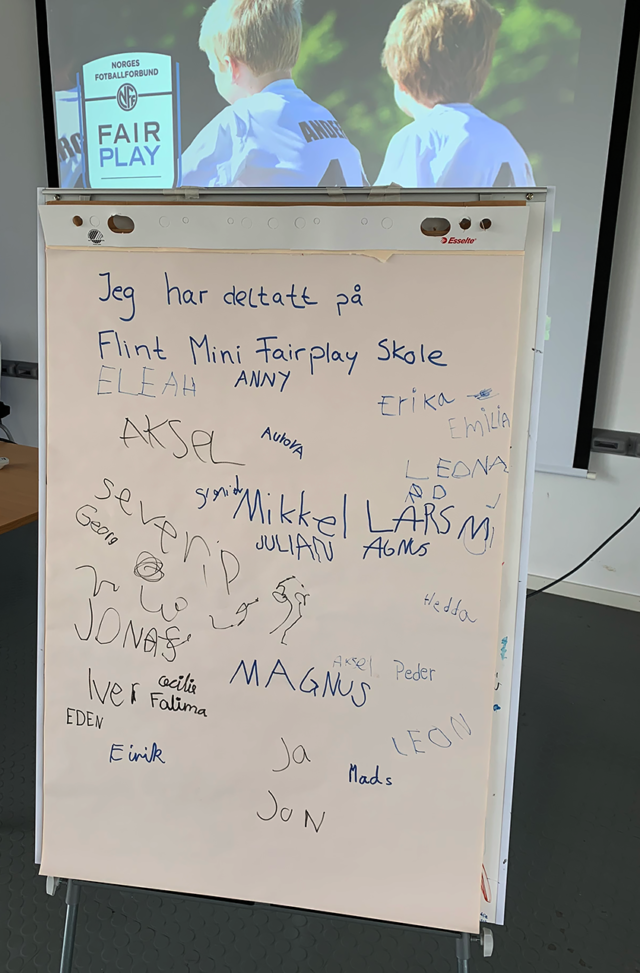 NORGES
FOTBALLFORBUND
NFF
FAIR
PLAY
ANDER
Esselte
Jeg har deltatt på
Flint Mini Fairplay Skole
ELEAH ANNY
Erika
EMILIA
AKSEL AURORA
LEONA
RD
severin sigrid Mikkel LARS Mi
Georg JULIAN AGNES
Hedda
JONAS
Aksel Peder
Iver Cecilie MAGNUS
EDEN Fatima
LEON
Eirik Ja Mads
JON